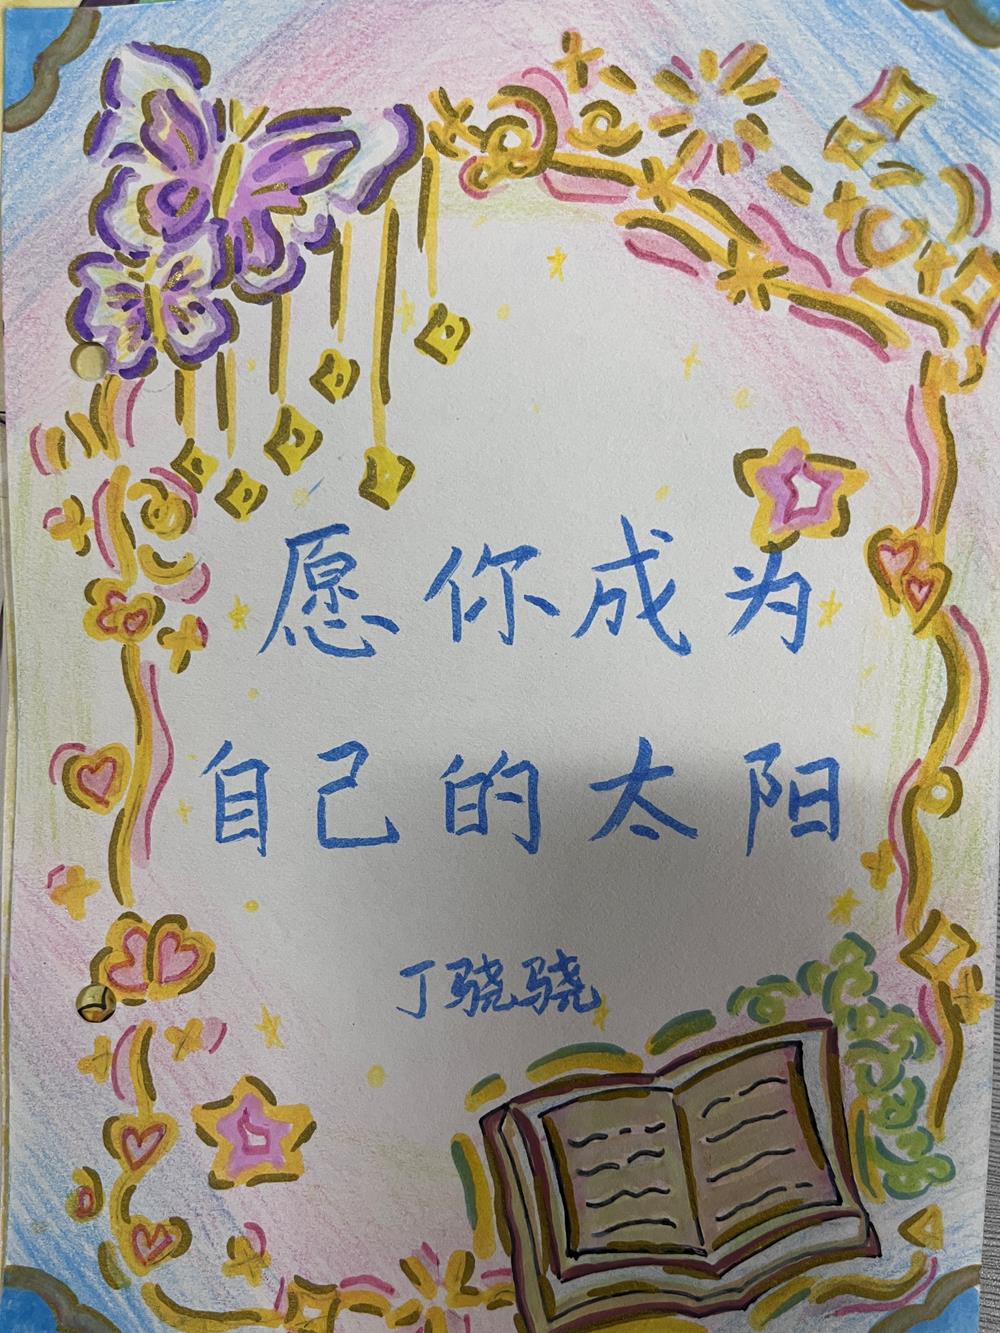 愿你成为
自己的太阳
丁骁骁